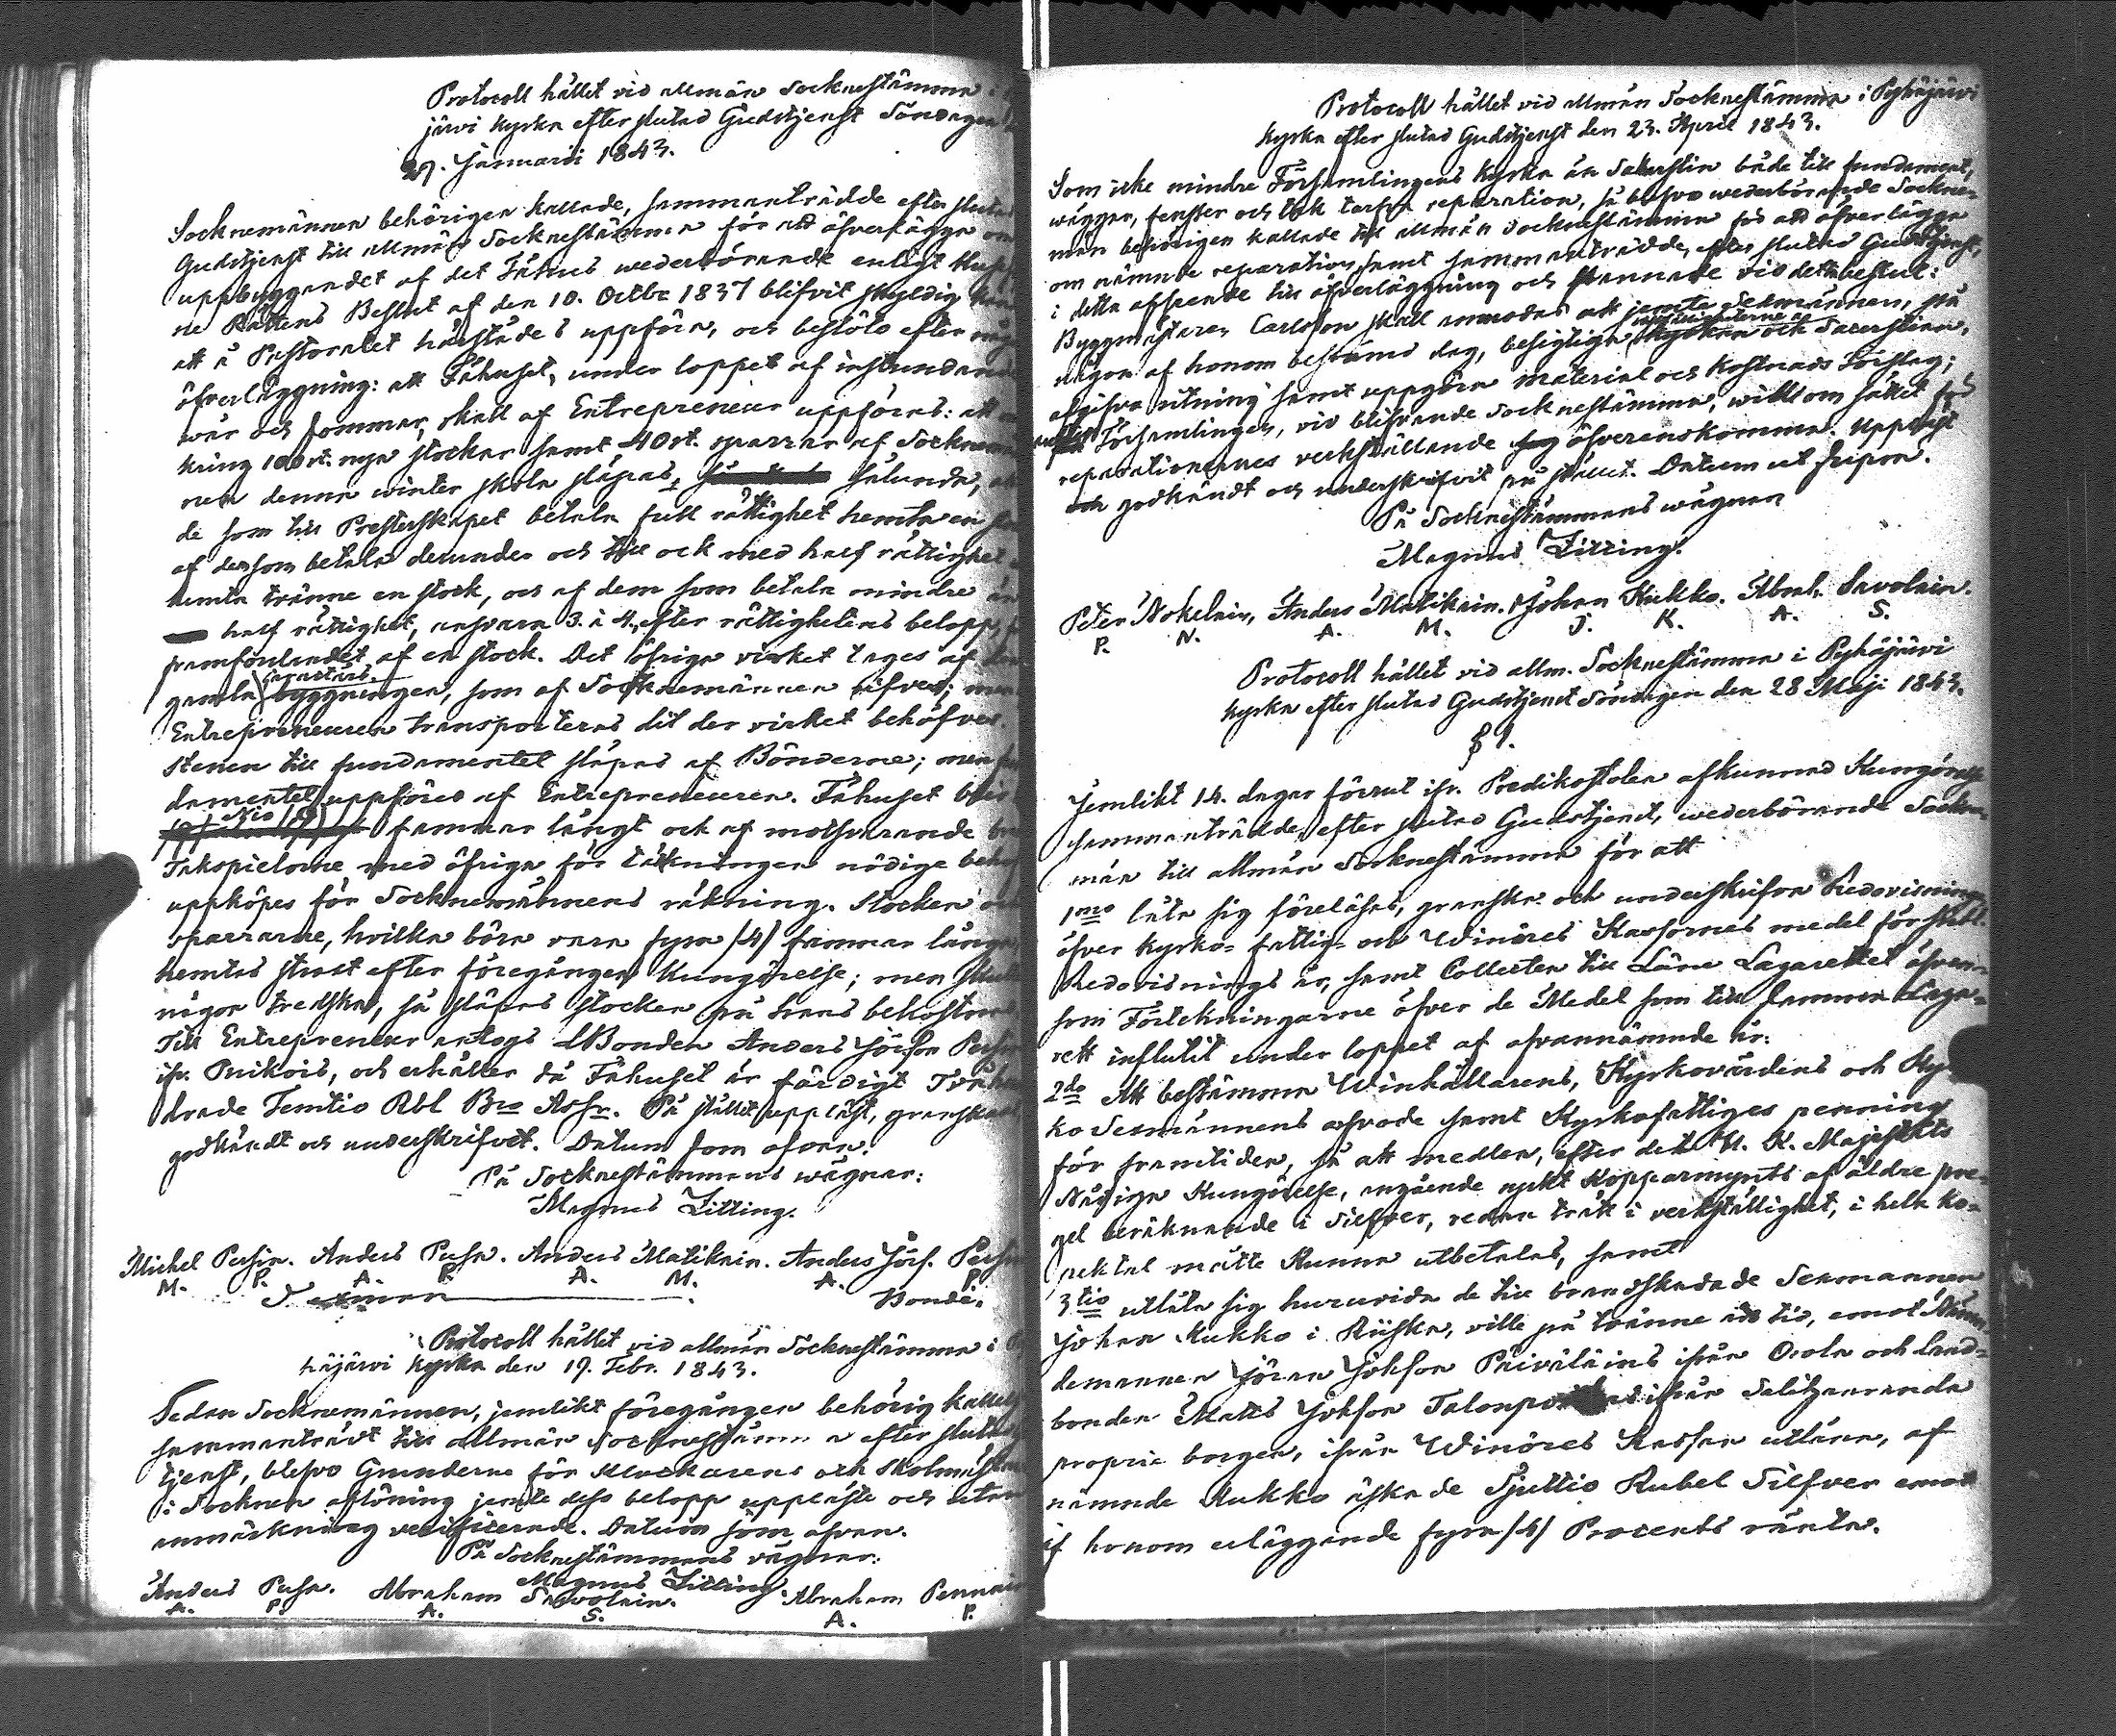 Protocoll hållet vid allmän Socknestämma i
järvi kyrka efter slutad Gudstjenst Söndagen
29. Januarii 1843.
Socknemännen behörigen kallade, sammanträdde efter slutad
Gudstjenst till allmän Socknestämma för att öfverlägga om
uppbyggandet af det Fähus wederbörande enligt
ne Rättens Beslut af den 10. Octbr 1837 blifvit skyldig
att å Pastoratet härstädes uppföra, och beslöts efter
öfverläggning: att Fähuset, under loppet af instundande
wår och sommar, skall af Entrepreneur uppföras: att
kring 100 st. nya stockar samt 40 st. sparrar af Sockne
nen denna winter skola släpas, sålunda,
de som till Presterskapet betala full rättighet hemta en
af dem som betala derunder och till ock med half rättighet
hemta tvänne en stock, och af dem som betala mindre än
half rättighet, ansvara 3. à 4., efter rättighetens belopp,
framförandet af en stock. Det öfriga virket tages af den
gamla byggningen, som af Socknemännen rifves; men
Entrepreneuren transporteras dit der virket behöfves.
Stenen till fundamentet släpas af Bönderne; men fun
damentet uppföres af Entrepreneuren. Fähuset blir
Nio /9/ famnar långt och af motsvarande
Takspielorne med öfriga för täkningen nödige
uppköpes för Socknemännens räkning. Stocken och
sparrarne, hvilka böra vara fyra /4/ famnar långa,
hemtas strast efter föregången Kungörelse; men skulle
någon tredska, så släpas stocken på hans bekostnad
Till Entrepreneur antogs Bonden Anders Jörson
ifr. Pnikois, och erhåller då Fähuset är färdigt Tvåhun
drade Femtio Rbl Bco Assr. På stället uppläst, granskadt
godkändt och underskrifvet. Datum som ofvan.
På Socknestämmans wägnar:
Magnus Zitting.
Michel Pusin. Anders Pusn. Anders Matikain. Anders Jörs.
M. P. A. P. A. M. A. P.
Sexman Bonde.
Protocoll hållet vid allmän Socknestämma i
häjärvi kyrka den 19. Febr. 1843.
Sedan Socknemännen, jemlikt föregången behörig kallelse
sammanträdt till allmän Socknestämma efter slutad
tjenst, blefvo Grunderne för Klockarens och Skolmästarens
i Socknen aflöning jemte dess belopp uppläste och utan
anmärkning verificerade. Datum som ofvan.
På Socknestämmans vägnar:
Magnus Zitting
Anders Pusn. Abraham Savolain. Abraham Pennain
A. P. A. S. A. P.
Protocoll hållet vid allmän Socknestämma i Pyhäjärvi
kyrka efter slutad Gudstjenst den 23. April 1843.
Som icke mindre Församlingens kyrka än Sakerstia både till fundament,
wäggar, fenster och tak tarfva reparation, så blefvo wederbörande Sockne-
män behörigen kallade till allmän Socknestämma för att öfverlägga
om nämnde reparation, samt sammanträdde, efter slutad Gudstjenst,
i detta afseende till öfverläggning och stannade vid detta beslut:
Byggmästaren Carlsson skall anmodas att jemte Sexmännen, på
någon af honom bestämd dag, besigtiga kyrkan och Sacerstian,
afgifva ritning samt uppgöra material och Kostnads Förslag;
Församlingen, vid blifvande Socknestämma, will om sättet för
reparationernes verkställande öfverenskomma. Uppläst
och godkändt och underskrifvit på stället. Datum ut supra.
På Socknestämmans wägnar
Magnus Zitting.
Peter Nokelain, Anders Matikain. Johan Kukko. Abrah. Savolain.
P. N. A. M. J. K. A. S.
Protocoll hållet vid allm. Socknestämma i Pyhäjärvi
kyrka efter slutad Gudstjenst Söndagen den 28 Maji 1843.
§ 1.
Jemlikt 14. dagar förrut ifr. Predikostolen afkunnad Kungörelse
sammanträdde, efter slutad Gudstjenst, wederbörande Sockne-
män till allmän Socknestämma för att
1mo låta sig föreläsas, granska och underskrifva Redovisningen
öfver kyrko- fattig- och Winöres Kassornes medel för sistl.
Redovisnings år, samt Collecten till Läne Lazarettet äfven-
som Förtekningarne öfver de Medel som till samma Laza-
rett influtit under loppet af ofvannämnde år.
2do Att bestämma Winhållarens, Kyrkovärdens och Kyr
ko Sexmännens arfvode samt Kyrkofattiges penning
för framtiden, så att medlen, efter det H. K. Majestäts
Nådiga Kungörelse, angående nytt Kopparmynts af äldre pre-
gel beräknande i Silfver, redan trädt i verkställighet, i hela ko-
pektal måtte Kunna utbetalas, samt
3tio utlåta sig huruvida de till brandskadade Sexmannen
Johan Kukko i Riiska, ville på tvänne års tid, emot Näm
demannen Jöran Johsson Päiväläins ifrån Ocola och land-
bonden Matts Johsson ifrån Salitzaranda
proprie borgen, ifrån Winöres Kassan utlåna, af
nämnde Kukko äskade Sjuttio Rubel Silfver emot
af honom erläggande fyra /4/ Procents ränta.